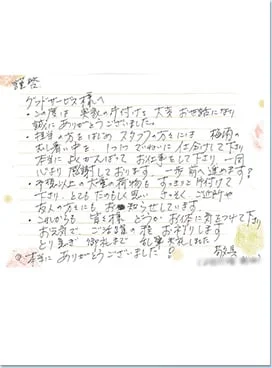 謹啓
グッドサービス様へ
・この度は 実家の片付けを 大変 お世話になり
誠に ありがとうございました。
・担当の方をはじめ スタッフの方々には 梅雨の
むし暑い中を、1つ1つていねいに 仕分けして下り
本当に よくがんばって お仕事をして下り、一同
心より 感謝しております。一歩 前へ進めます?
・予想以上の大量の荷物も すっきりと片付けて
下り、とても たのもしい思い さっそく ご近所や
友人の方々にも お知らせしています。
・これからも 皆々様 どうか お体に気をつけて下り
お元気で ご活躍の程 お祈りします
とり急ぎ 御礼まで 乱筆 失礼しました
敬具
◎本当に ありがとうございました!